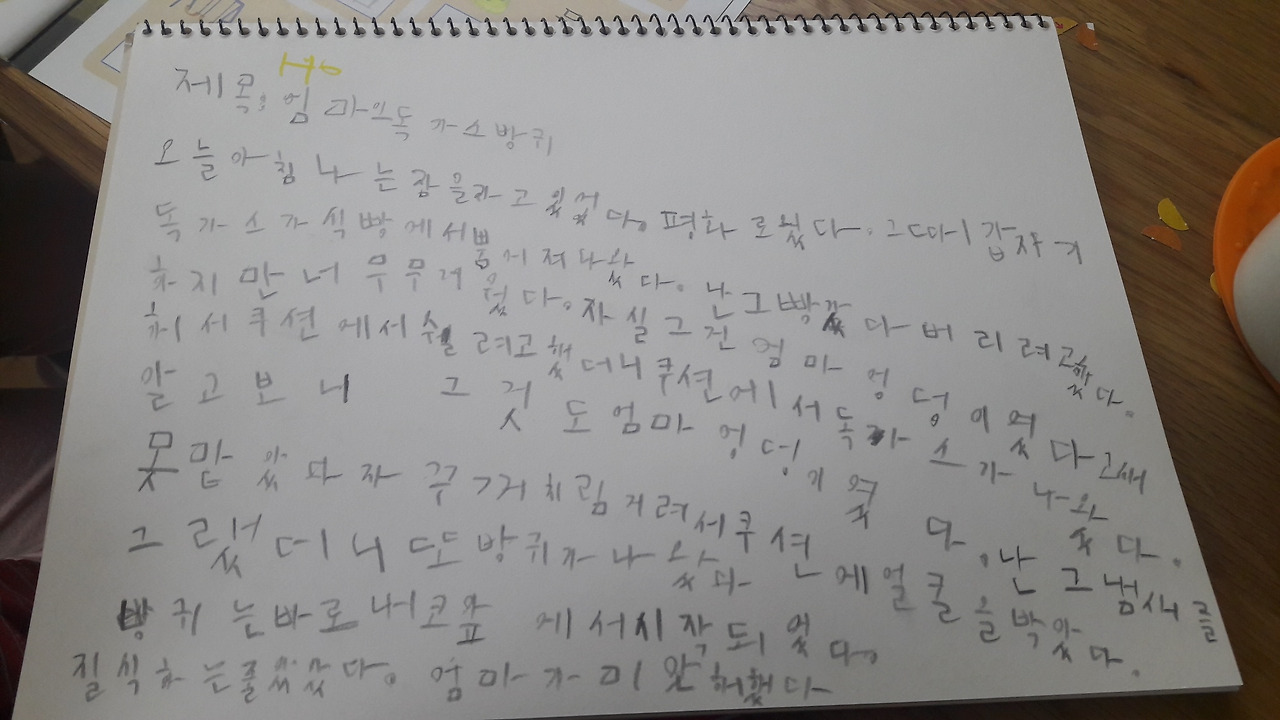 제목: 엄마의독 가스방귀
오늘아침 나는잠을라고 있섰다. 평화로웠다. 그때 갑자기
독가스가식빵에서뿜어져나왔다. 난그빵깠다버리려고했다.
하지만너무무거웠다. 사실그건엄마엉덩이였다
해서쿠션에서쉴려고했더니쿠션에서독가스가나왔다.
알고보니 그것도엄마 엉덩이였다. 난 그냄새를
못맡았다 자꾸 거려서쿠션에얼굴을박았다.
그랬더니또방귀가나왔다
방귀는바로내코앞에서시작되었다.
질식하는줄 . 엄마가미안해했다